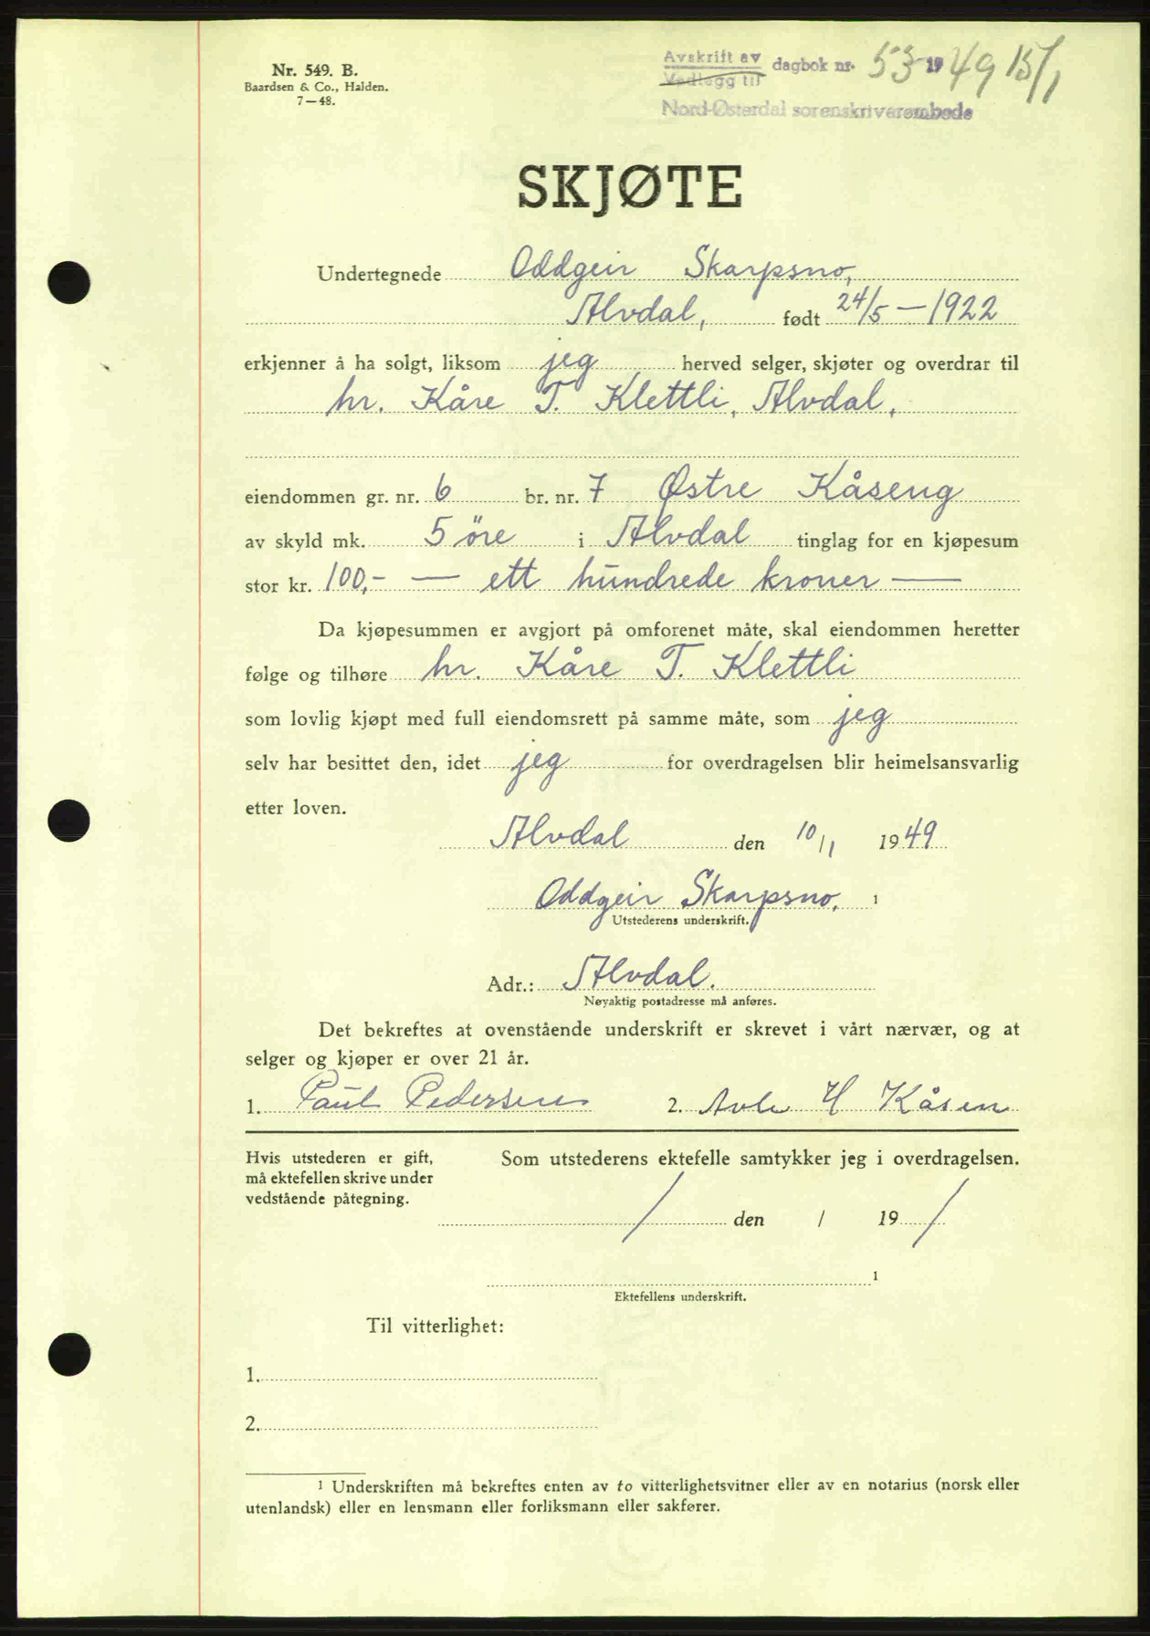 Nr. 549. B.
Baardsen & Co., Halden.
7—48.
Avskrift av
Vedlegg til
dagbok nr. 53 1949 15/1
Nord-Østerdal sorenskriverembede
SKJØTE
Undertegnede Oddgeir Skarpsno,
Alvdal, født 24/5 — 1922
erkjenner å ha solgt, liksom jeg herved selger, skjøter og overdrar til
hr. Kåre T. Klettli, Alvdal,
eiendommen gr. nr. 6 br. nr. 7 Østre Kåseng
av skyld mk. 5 öre i Alvdal tinglag for en kjøpesum
stor kr. 100,- — ett hundrede kroner —
Da kjøpesummen er avgjort på omforenet måte, skal eiendommen heretter
følge og tilhøre hr. Kåre T. Klettli
som lovlig kjøpt med full eiendomsrett på samme måte, som jeg
selv har besittet den, idet jeg for overdragelsen blir heimelsansvarlig
etter loven.
Alvdal den 10/1 1949
Oddgeir Skarpsno. 1
Utstederens underskrift.
Adr.: Alvdal.
Nøyaktig postadresse må anføres.
Det bekreftes at ovenstående underskrift er skrevet i vårt nærvær, og at
selger og kjøper er over 21 år.
1. Paul Pedersen 2. H Kåsen
Hvis utstederen er gift,
må ektefellen skrive under
vedstående påtegning.
Som utstederens ektefelle samtykker jeg i overdragelsen.
/ den / 19 /
1
Ektefellens underskrift.
Til vitterlighet:
1.
2.
1 Underskriften må bekreftes enten av to vitterlighetsvitner eller av en notarius (norsk eller
utenlandsk) eller en lensmann eller forliksmann eller sakfører.